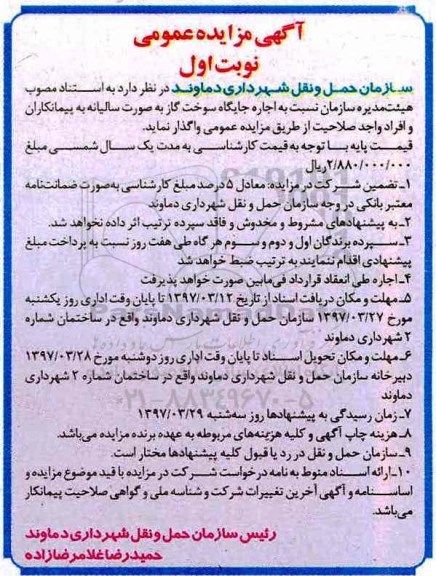 آگهی مزایده عمومی
نوبت اول
سازمان حمل و نقل شهرداری دماوند در نظر دارد به استناد مصوب
هیئت‌مدیره سازمان نسبت به اجاره جایگاه سوخت گاز به صورت سالیانه به پیمانکاران
و افراد واجد صلاحیت از طریق مزایده عمومی واگذار نماید.
قیمت پایه با توجه به قیمت کارشناسی به مدت یک سال شمسی مبلغ
۲/۸۸۰/۰۰۰/۰۰۰ریال
۱ـ تضمین شرکت در مزایده: معادل ۵ درصد مبلغ کارشناسی به‌صورت ضمانت‌نامه
معتبر بانکی در وجه سازمان حمل و نقل شهرداری دماوند
۲ـ به پیشنهادهای مشروط و مخدوش و فاقد سپرده ترتیب اثر داده نخواهد شد.
۳ـ سپرده برندگان اول و دوم و سوم هر گاه طی هفت روز نسبت به پرداخت مبلغ
پیشنهادی اقدام ننمایند به ترتیب ضبط خواهد شد
۴ـ اجاره طی انعقاد قرارداد فی‌مابین صورت خواهد پذیرفت
۵ـ مهلت و مکان دریافت اسناد از تاریخ ۱۳۹۷/۰۳/۱۲ تا پایان وقت اداری روز یکشنبه
مورخ ۱۳۹۷/۰۳/۲۷ سازمان حمل و نقل شهرداری دماوند واقع در ساختمان شماره
۲ شهرداری دماوند
۶ـ مهلت و مکان تحویل اسناد تا پایان وقت اداری روز دوشنبه مورخ ۱۳۹۷/۰۳/۲۸
دبیرخانه سازمان حمل و نقل شهرداری دماوند واقع در ساختمان شماره ۲ شهرداری
دماوند
۷ـ زمان رسیدگی به پیشنهادها روز سه‌شنبه ۱۳۹۷/۰۳/۲۹
۸ـ هزینه چاپ آگهی و کلیه هزینه‌های مربوطه به عهده برنده مزایده می‌باشد.
۹ـ سازمان حمل و نقل در رد یا قبول کلیه پیشنهادها مختار است.
۱۰ـ ارائه اسناد منوط به نامه درخواست شرکت در مزایده با قید موضوع مزایده و
اساسنامه و آگهی آخرین تغییرات شرکت و شناسه ملی و گواهی صلاحیت پیمانکار
می‌باشد.
رئیس سازمان حمل و نقل شهرداری دماوند
حمیدرضا غلامرضازاده
۰۲۱-۸۸۳۴۹۶۷۰-۵